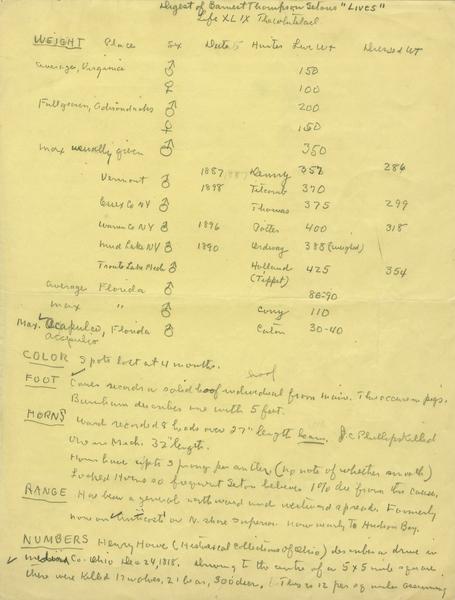 Digest of Barnest Thompson Setons "LIVES"
Life XLIX The whitetail
WEIGHT Place Sex Date Hunter Live Wt Dressed WT
average, Virginia ♂ 150
♀ 100
Full grown, Adirondacks ♂ 200
♀ 150
max usually given ♂ 350
Vermont ♂ 1887 Kenny 352 286
1898 Titcomb 370
Essex Co NY ♂ Thomas 375 299
Warren Co NY ♂ 1896 Potter 400 318
Mud Lake NY ♂ 1890 Ordway 388 (weighed)
Trout Lake Mich ♂ Holland 425 354
(Tippet)
average Florida ♂ 80-90
max " ♂ Cory 110
Max. Acapulco, Florida ♂ Caton 30-40
acapulco
COLOR Spots lost at 4 months.
hoof
FOOT Cites records a solid hoof individual from Maine. This occurs in pigs.
Burnham describes one with 5 feet.
HORNS Ward records 8 heads over 27" length beam. J.C. Phillips killed
one in Mich. 32" length.
Horns have up to 5 prongs per antler (no note of whether smooth)
Locked Horns so frequent Seton believes 1% die from this cause.
RANGE Has been a general northward and westward spread. Formerly
none on Anticosti or N. shore Superior. Now nearly to Hudson Bay.
NUMBERS Henry Howe (Historical Collections of Ohio) describes a drive in
Medina Co. Ohio Dec 24, 1818. Driving to the centre of a 5x5 mile square
there were killed 17 wolves, 21 bear, 300 deer. This is 12 per sq mile assuming